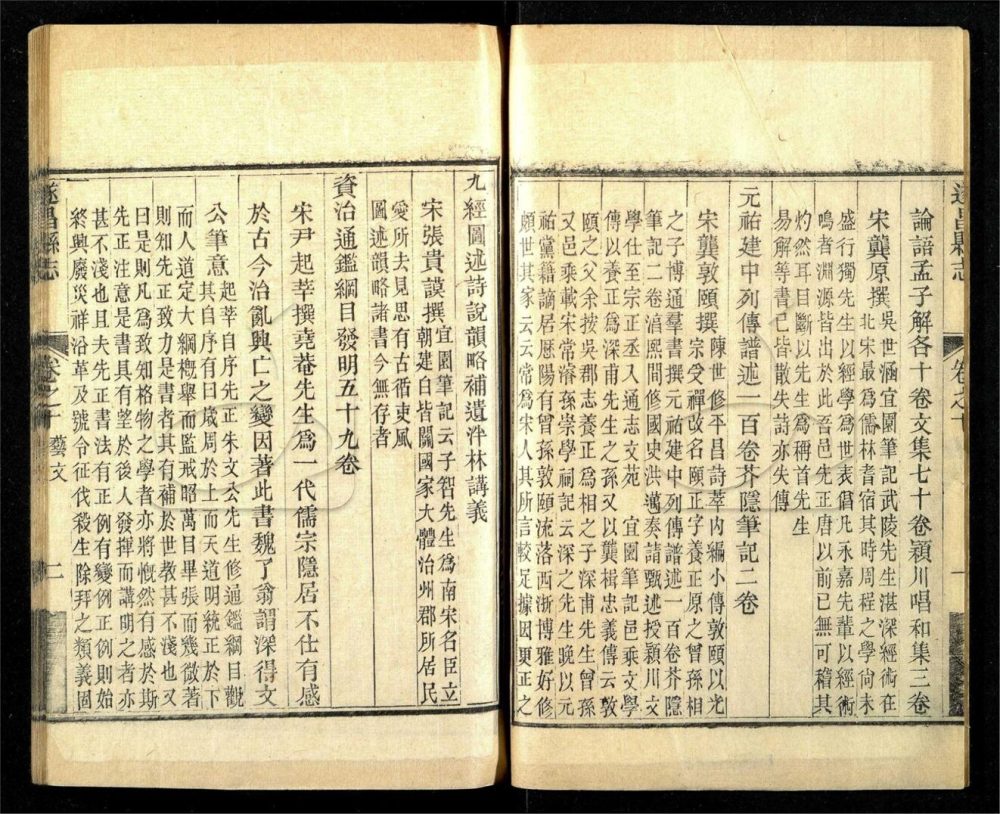 遂昌縣志
卷之十
一
論語孟子解各十卷文集七十卷潁川唱和集三卷
宋龔原撰吳世涵宜園筆記武陵先生湛深經術在
北宋最爲儒林耆宿其時周程之學尙未
盛行獨先生以經學爲世表倡凡永嘉先輩以經術
鳴者淵源皆出於此吾邑先正唐以前已無可稽其
灼然耳目斷以先生爲稱首先生
易解等書已皆散失詩亦失傳
元祐建中列傳譜述一百卷芥隱筆記二卷
宋龔敦頤撰陳世修平昌詩萃內編小傳敦頤以光
宗受禪改名頤正字養正原之曾孫相
之子博通羣書撰元祐建中列傳譜述一百卷芥隱
筆記二卷湻熙間修國史洪邁奏請甄述授潁川文
學仕至宗正丞入通志文苑 宜園筆記邑乘文學
傳以養正爲深甫先生之孫又以龔楫忠義傳云敦
頤之父余按吳郡志養正爲相之子深甫先生曾孫
又邑乘載宋常濬孫崇學祠記云深之先生晚以元
祐黨籍謫居歷陽有曾孫敦頤流落西浙博雅好修
頗世其家云云常爲宋人其所言較足據因更正之
九經圖述詩說韻略補遺泮林講義
宋張貴謨撰宜園筆記云子智先生爲南宋名臣立
朝建白皆關國家大體治州郡所居民
愛所去見思有古循吏風
圖述韻略諸書今無存者
資治通鑑綱目發明五十九卷
宋尹起莘撰堯菴先生爲一代儒宗隱居不仕有感
於古今治亂興亡之變因著此書魏了翁謂深得文
公筆意起莘自序先正朱文公先生修通鑑綱目觀
其自序有曰歲周於上而天道明統正於下
而人道定大綱槪舉而監戒昭萬目畢張而幾微著
則知先正致力是書者其有補於世教甚不淺也又
曰是則凡爲致知格物之學者亦將慨然有感於斯
先正注意是書具有望於後人發揮而講明之者亦
甚不淺也且夫先正書法有正例有變例正例則始
終興廢災祥沿革及號令征伐殺生除拜之類義固
遂昌縣志
卷之十
藝文
二